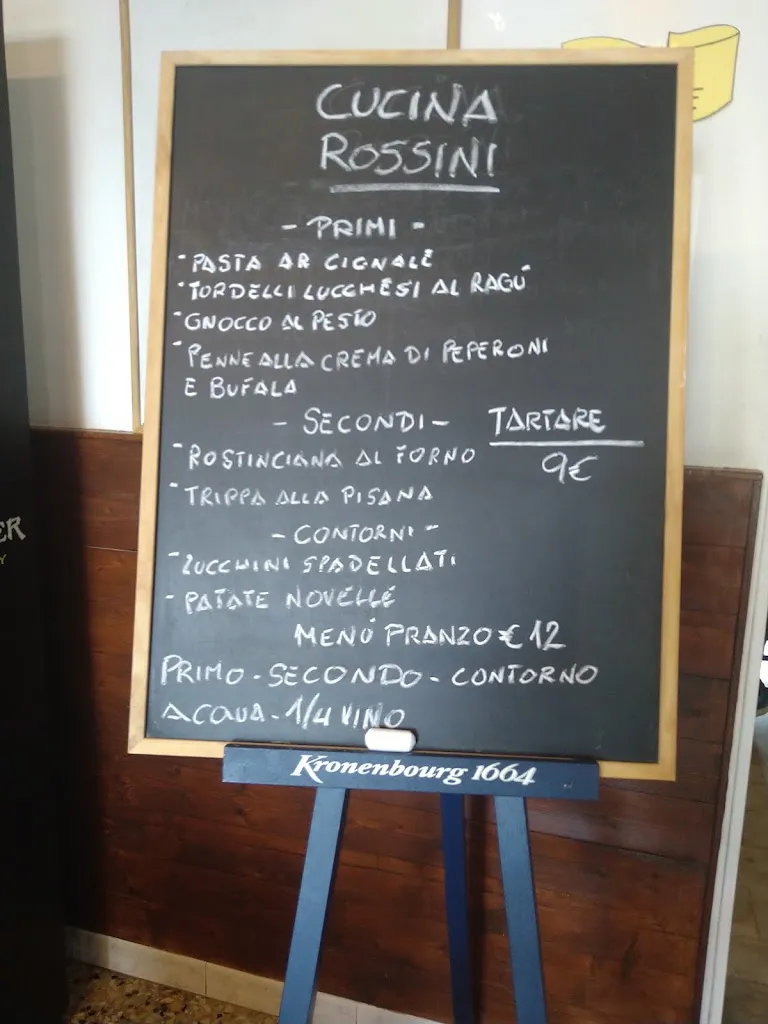 CUCINA
ROSSINI
- PRIMI -
- PASTA AR CIGNALE
- TORDELLI LUCCHESI AL RAGÚ
- GNOCCO AL PESTO
- PENNE ALLA CREMA DI PEPERONI
E BUFALA
- SECONDI -
- ROSTINCIANA AL FORNO
- TRIPPA ALLA PISANA
TARTARE
9€
- CONTORNI -
- ZUCCHINI SPADELLATI
- PATATE NOVELLE
MENÚ PRANZO € 12
PRIMO - SECONDO - CONTORNO
ACQUA - 1/4 VINO
Kronenbourg 1664